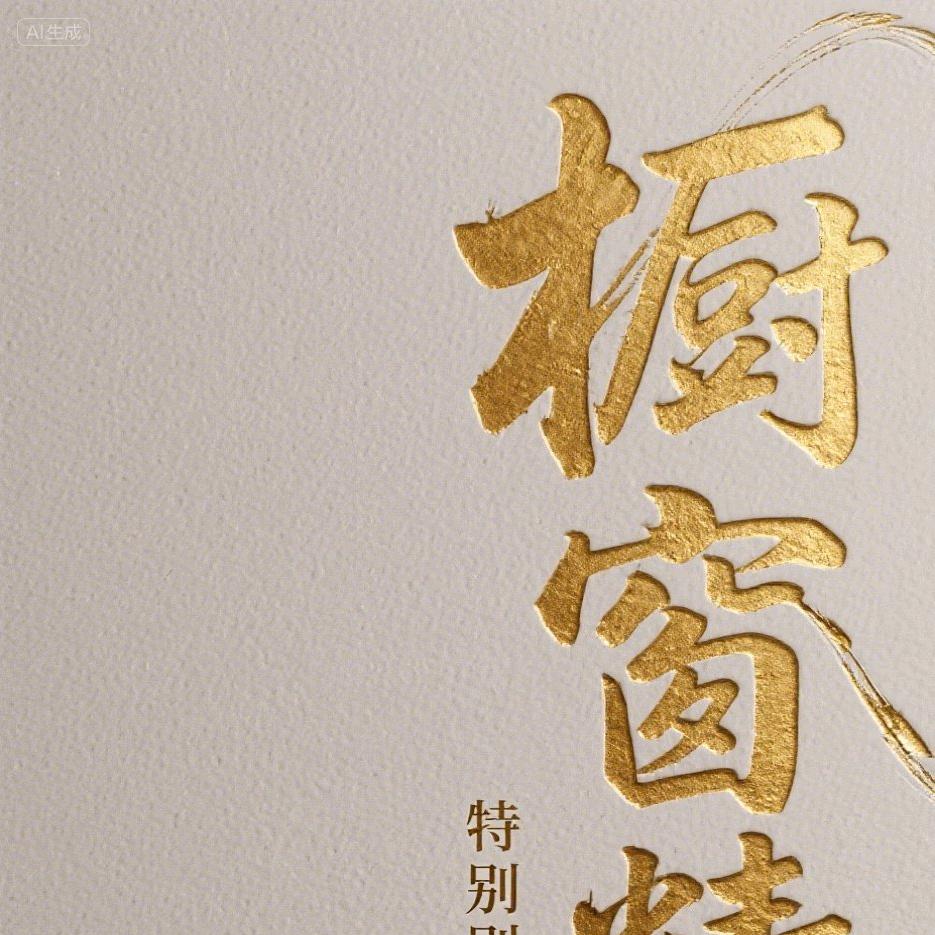 AI生成
橱窗
特别